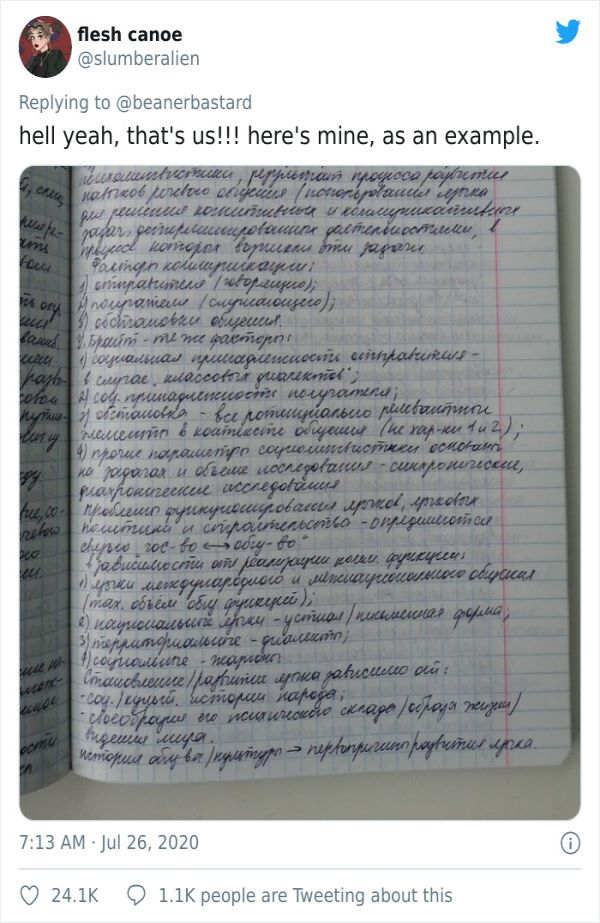 flesh canoe
@slumberalien
Replying to @beanerbastard
hell yeah, that's us!!! here's mine, as an example.
психолингвистики, результат процесса развития
навыков речевого общения (использования языка
для решения когнитивных и коммуникативных
задач, детерминированных деятельностями, в
процессе которых возникли эти задачи.
Факторы коммуникации:
1) отправителя (говорящего);
2) получателя (слушающего);
3) обстановки общения.
У. Брайт - те же факторы:
1) социальная принадлежность отправителя -
в случае "классовых диалектов";
2) соц. принадлежности получателя;
3) обстановка - все потенциально релевантные
элементы в контексте общения (не хар-ки 1 и 2);
4) прочие параметры социолингвистики основаны
на задачах и объёме исследования - синхронические,
диахронические исследования
Проблемы функционирования языков, языковых
политики и строительства - определяются
сверху "гос-во ↔ общ-во"
В зависимости от реализации комм. функции:
1) языки международного и межнационального общения
(max. объём общ. функций);
2) национальные языки - устная/письменная форма;
3) территориальные - диалекты;
4) социальные - жаргоны.
Становление/развитие языка зависимо от:
- соц./культ. истории народа;
- своеобразия его психического склада/образа жизни/
видения мира.
история общ-ва/культуры → первопричины развития языка.
7:13 AM · Jul 26, 2020
24.1K
1.1K people are Tweeting about this